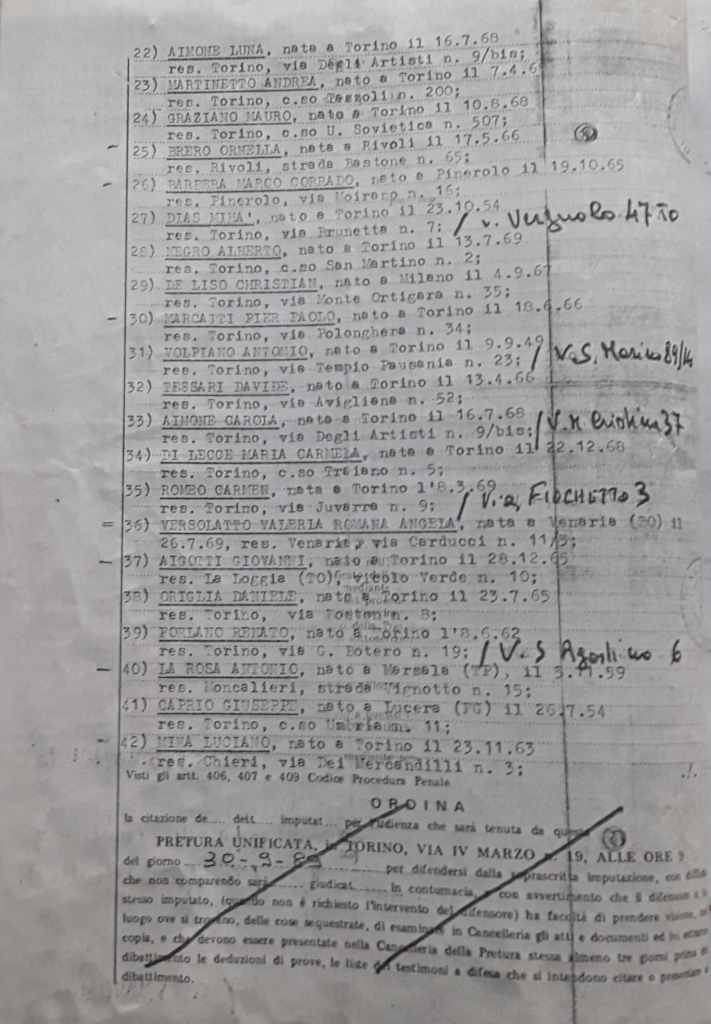 22) AIMONE LUNA, nata a Torino il 16.7.68
res. Torino, via Degli Artisti n. 9/bis;
23) MARTINETTO ANDREA, nato a Torino il 7.4.6
res. Torino, c.so Tazzoli n. 200;
24) GRAZIANO MAURO, nato a Torino il 10.8.68
res. Torino, c.so U. Sovietica n. 507;
- 25) BRERO ORNELLA, nata a Rivoli il 17.5.66
res. Rivoli, strada Bastone n. 65;
- 26) BARBERA MARCO CORRADO, nato a Pinerolo il 19.10.65
res. Pinerolo, via Moirano n. 16;
27) DIAS MIMA', nato a Torino il 23.10.54
res. Torino, via Brunetta n. 7; / v. Vergnolo 47 TO
28) NEGRO ALBERTO, nato a Torino il 13.7.69
res. Torino, c.so San Martino n. 2;
29) DE LISO CHRISTIAN, nato a Milano il 4.9.67
res. Torino, via Monte Ortigara n. 35;
- 30) MARCATTI PIER PAOLO, nato a Torino il 18.6.66
res. Torino, via Polonghera n. 34;
31) VOLPIANO ANTONIO, nato a Torino il 9.9.49
res. Torino, via Tempio Pausania n. 23; / V. S. Marino 89/14
32) TESSARI DAVIDE, nato a Torino il 13.4.66
res. Torino, via Avigliana n. 52;
33) AIMONE CAROLA, nata a Torino il 16.7.68
res. Torino, via Degli Artisti n. 9/bis; / V. M. Cristina 37
34) DI LECCE MARIA CARMELA, nata a Torino il 22.12.68
res. Torino, c.so Traiano n. 5;
35) ROMEO CARMEN, nata a Torino l'8.3.69
res. Torino, via Juvarra n. 9; / Via FIOCHETTO 3
= 36) VERSOLATTO VALERIA ROMANA ANGELA, nata a Venaria (TO) il
26.7.69, res. Venaria, via Carducci n. 11/3;
- 37) AIGOTTI GIOVANNI, nato a Torino il 28.12.65
res. La Loggia (TO), vicolo Verde n. 10;
38) ORIGLIA DANIELE, nato a Torino il 23.7.65
res. Torino, via n. 8;
39) FORLANO RENATO, nato a Torino l'8.6.62
res. Torino, via G. Botero n. 19; / V. S. Agostino 6
- 40) LA ROSA ANTONIO, nato a Marsala (TP), il 3.11.59
res. Moncalieri, strada Vignotto n. 15;
41) CAPRIO GIUSEPPE, nato a Lucera (FG) il 26.7.54
res. Torino, c.so Umbria n. 11;
- 42) MINA LUCIANO, nato a Torino il 23.11.63
res. Chieri, via Dei Mercandilli n. 3; ./.
Visti gli artt. 406, 407 e 409 Codice Procedura Penale
ORDINA
la citazione de.... dett.... imputat.... per l'udienza che sarà tenuta da questa
PRETURA UNIFICATA, in TORINO, VIA IV MARZO n. 19, ALLE ORE 9
del giorno 30-9-89 per difendersi dalla soprascritta imputazione, con diffida
che non comparendo sarà giudicat.... in contumacia, e con avvertimento che il difensore o lo
stesso imputato, (quando non è richiesto l'intervento del difensore) ha facoltà di prendere visione, nel
luogo ove si trovano, delle cose sequestrate, di esaminare in Cancelleria gli atti e documenti ed ivi estrarne
copia, e che devono essere presentate nella Cancelleria della Pretura stessa almeno tre giorni prima del
dibattimento le deduzioni di prove, le liste dei testimoni a difesa che si intendono citare o presentare a
dibattimento.